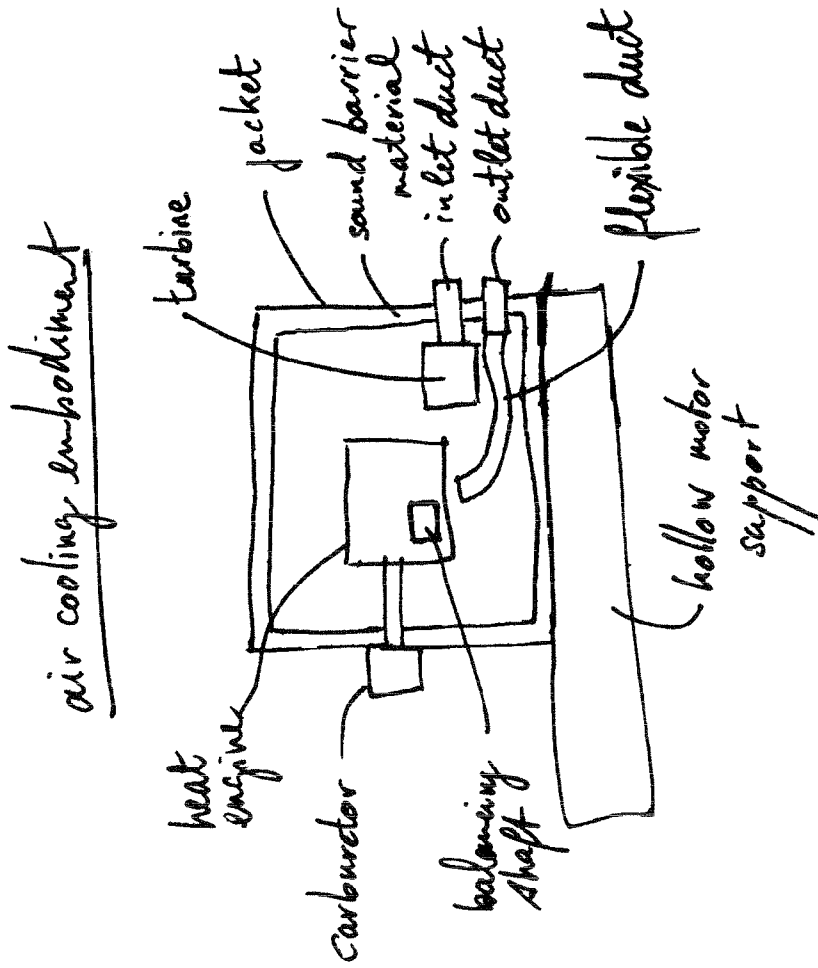 air cooling embodiment
turbine
jacket
sound barrier
material
inlet duct
outlet duct
flexible duct
heat
engine
carburetor
balancing
shaft
hollow motor
support